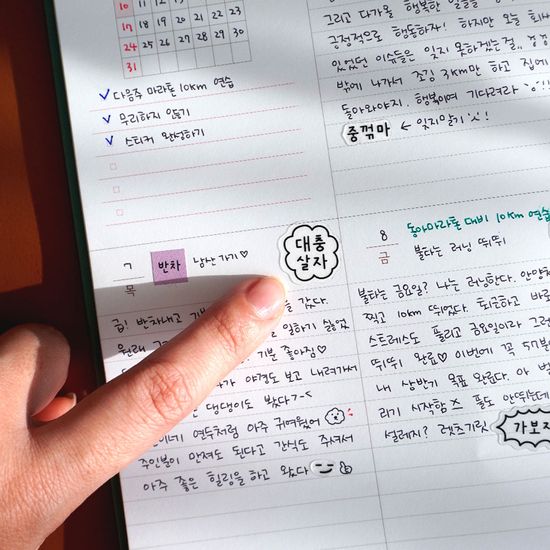 10 11 12 13
17 18 19 20 21 22 23
24 25 26 27 28 29 30
31
다음주 마라톤 10km 연습
무리하지 않기
스티커 완성하기
그리고 다가올 행복한
긍정적으로 행동하자! 하지만 오늘 회사
있었던 이슈들은 잊지 못하겠는걸..
밖에 나가서 조깅 3km만 하고 집에
돌아와야지. 행복이여 기다려라
중꺾마 ← 잊지말기
7
목
반차 남산 가기♡
대충
살자
급! 반차내고 갔다.
원래 일하기 싫었
기분 좋아짐♡
야경도 보고 내려가서
댕댕이도 봤다~<
연두처럼 아주 귀여웠어
주인분이 만져도 된다고 간식도 주셔서
아주 좋은 힐링을 하고 왔다
8
금
동아마라톤 대비 10km 연습
불타는 러닝 뛰뛰
불타는 금요일? 나는 러닝한다. 안양
찍고 10km 뛰었다. 퇴근하고 바로
스트레스도 풀리고 금요일이라 그런
뛰뛰 완료♡ 이번에 꼭 5
내 상반기 목표 완료다. 아
리기 시작함 풀도 안뛰는데
설레지? 렛츠기릿
가보자